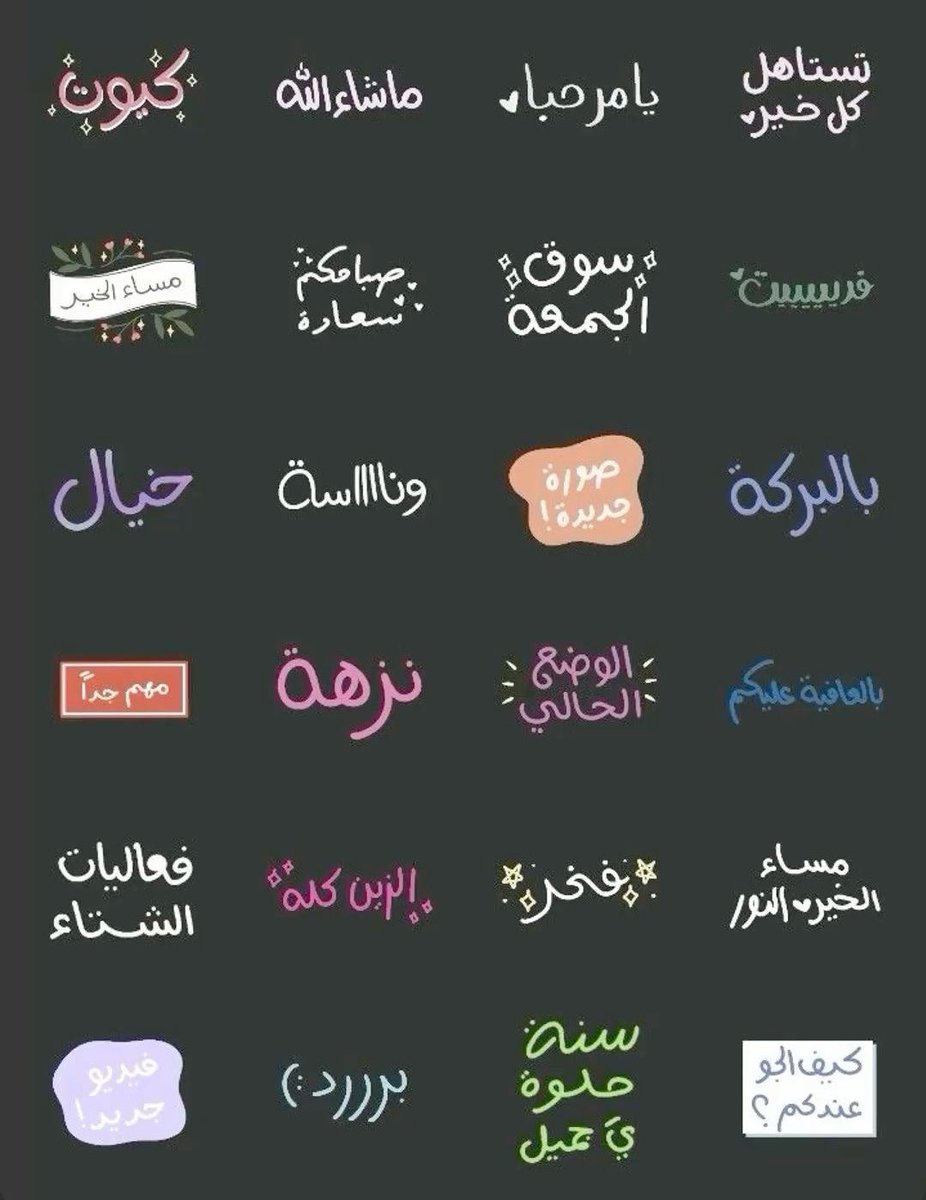 تستاهل
كل خير
يا مرحبا
ماشاء الله
كيوت
فديييييت
سوق
الجمعة
صباحكم
سعادة
مساء الخير
بالبركة
صورة
جديدة!
وناااااسة
خيال
بالعافية عليكم
الوضع
الحالي
نزهة
مهم جداً
مساء
الخير النور
فخر
الزين كله
فعاليات
الشتاء
كيف الجو
عندكم؟
سنة
حلوة
يَ جميل
برررد :(
فيديو
جديد!